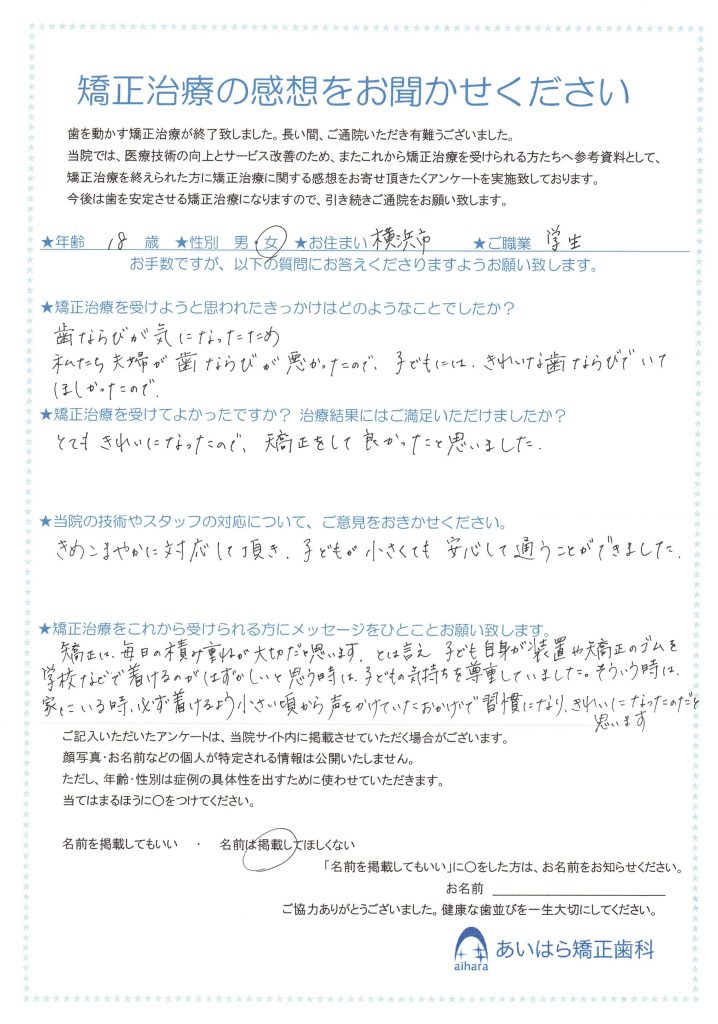 矯正治療の感想をお聞かせください
歯を動かす矯正治療が終了致しました。長い間、ご通院いただき有難うございました。
当院では、医療技術の向上とサービス改善のため、またこれから矯正治療を受けられる方たちへ参考資料として、
矯正治療を終えられた方に矯正治療に関する感想をお寄せ頂きたくアンケートを実施致しております。
今後は歯を安定させる矯正治療になりますので、引き続きご通院をお願い致します。
★年齢 18 歳 ★性別 男・女 ★お住まい 横浜市 ★ご職業 学生
お手数ですが、以下の質問にお答えくださりますようお願い致します。
★矯正治療を受けようと思われたきっかけはどのようなことでしたか？
歯ならびが気になったため
私たち夫婦が歯ならびが悪かったので、子どもには、きれいな歯ならびでいて
ほしかったので。
★矯正治療を受けてよかったですか？ 治療結果にはご満足いただけましたか？
とてもきれいになったので、矯正をして良かったと思いました。
★当院の技術やスタッフの対応について、ご意見をおきかせください。
きめこまやかに対応して頂き、子どもが小さくても安心して通うことができました。
★矯正治療をこれから受けられる方にメッセージをひとことお願い致します。
矯正は、毎日の積み重ねが大切だと思います。とは言え子ども自身が装置や矯正のゴムを
学校などで着けるのがはずかしいと思う時は、子どもの気持ちを尊重していました。そういう時は、
家にいる時、必ず着けるよう小さい頃から声をかけていたおかげで習慣になり、きれいになったのだと
思います
ご記入いただいたアンケートは、当院サイト内に掲載させていただく場合がございます。
顔写真・お名前などの個人が特定される情報は公開いたしません。
ただし、年齢・性別は症例の具体性を出すために使わせていただきます。
当てはまるほうに〇をつけてください。
名前を掲載してもいい ・ 名前は掲載してほしくない
「名前を掲載してもいい」に〇をした方は、お名前をお知らせください。
お名前
ご協力ありがとうございました。健康な歯並びを一生大切にしてください。
aihara あいはら矯正歯科